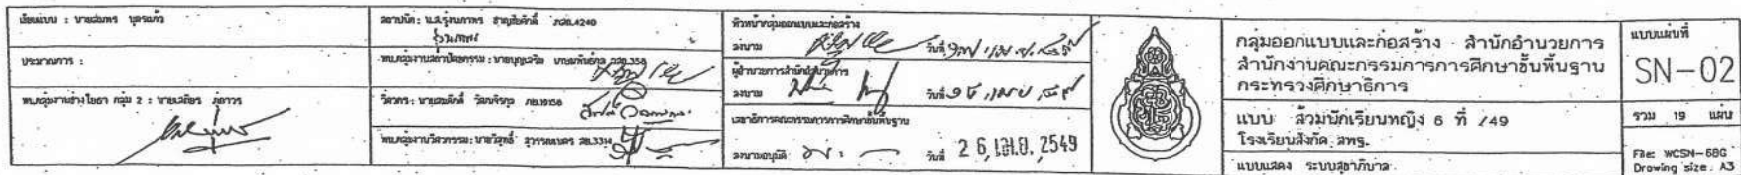 เขียนแบบ : นายสมพร บุตรแก้ว
ประมาณการ :
หน.กลุ่มงานช่างโยธา กลุ่ม 2 : นายเสถียร
สถาปนิก : น.ส.รุ่งนภาพร ชาญชัยศักดิ์ ภสถ.4240
หน.กลุ่มงานสถาปัตยกรรม : นายบุญเสริม
วิศวกร : นายสมศักดิ์
หน.กลุ่มงานวิศวกรรม : นายวิสุทธิ์ สุวรรณเนตร สย.3314
หัวหน้ากลุ่มออกแบบและก่อสร้าง
ลงนาม วันที่
ผู้อำนวยการสำนักอำนวยการ
ลงนาม วันที่
เลขาธิการคณะกรรมการการศึกษาขั้นพื้นฐาน
ลงนามอนุมัติ วันที่ 2 6 เม.ย. 2549
กลุ่มออกแบบและก่อสร้าง สำนักอำนวยการ
สำนักงานคณะกรรมการการศึกษาขั้นพื้นฐาน
กระทรวงศึกษาธิการ
แบบ ส้วมนักเรียนหญิง 6 ที่ /49
โรงเรียนสังกัด สพฐ.
แบบแสดง ระบบสุขาภิบาล
แบบแผ่นที่
SN-02
รวม 19 แผ่น
File: WCSN-68G
Drawing size : A3